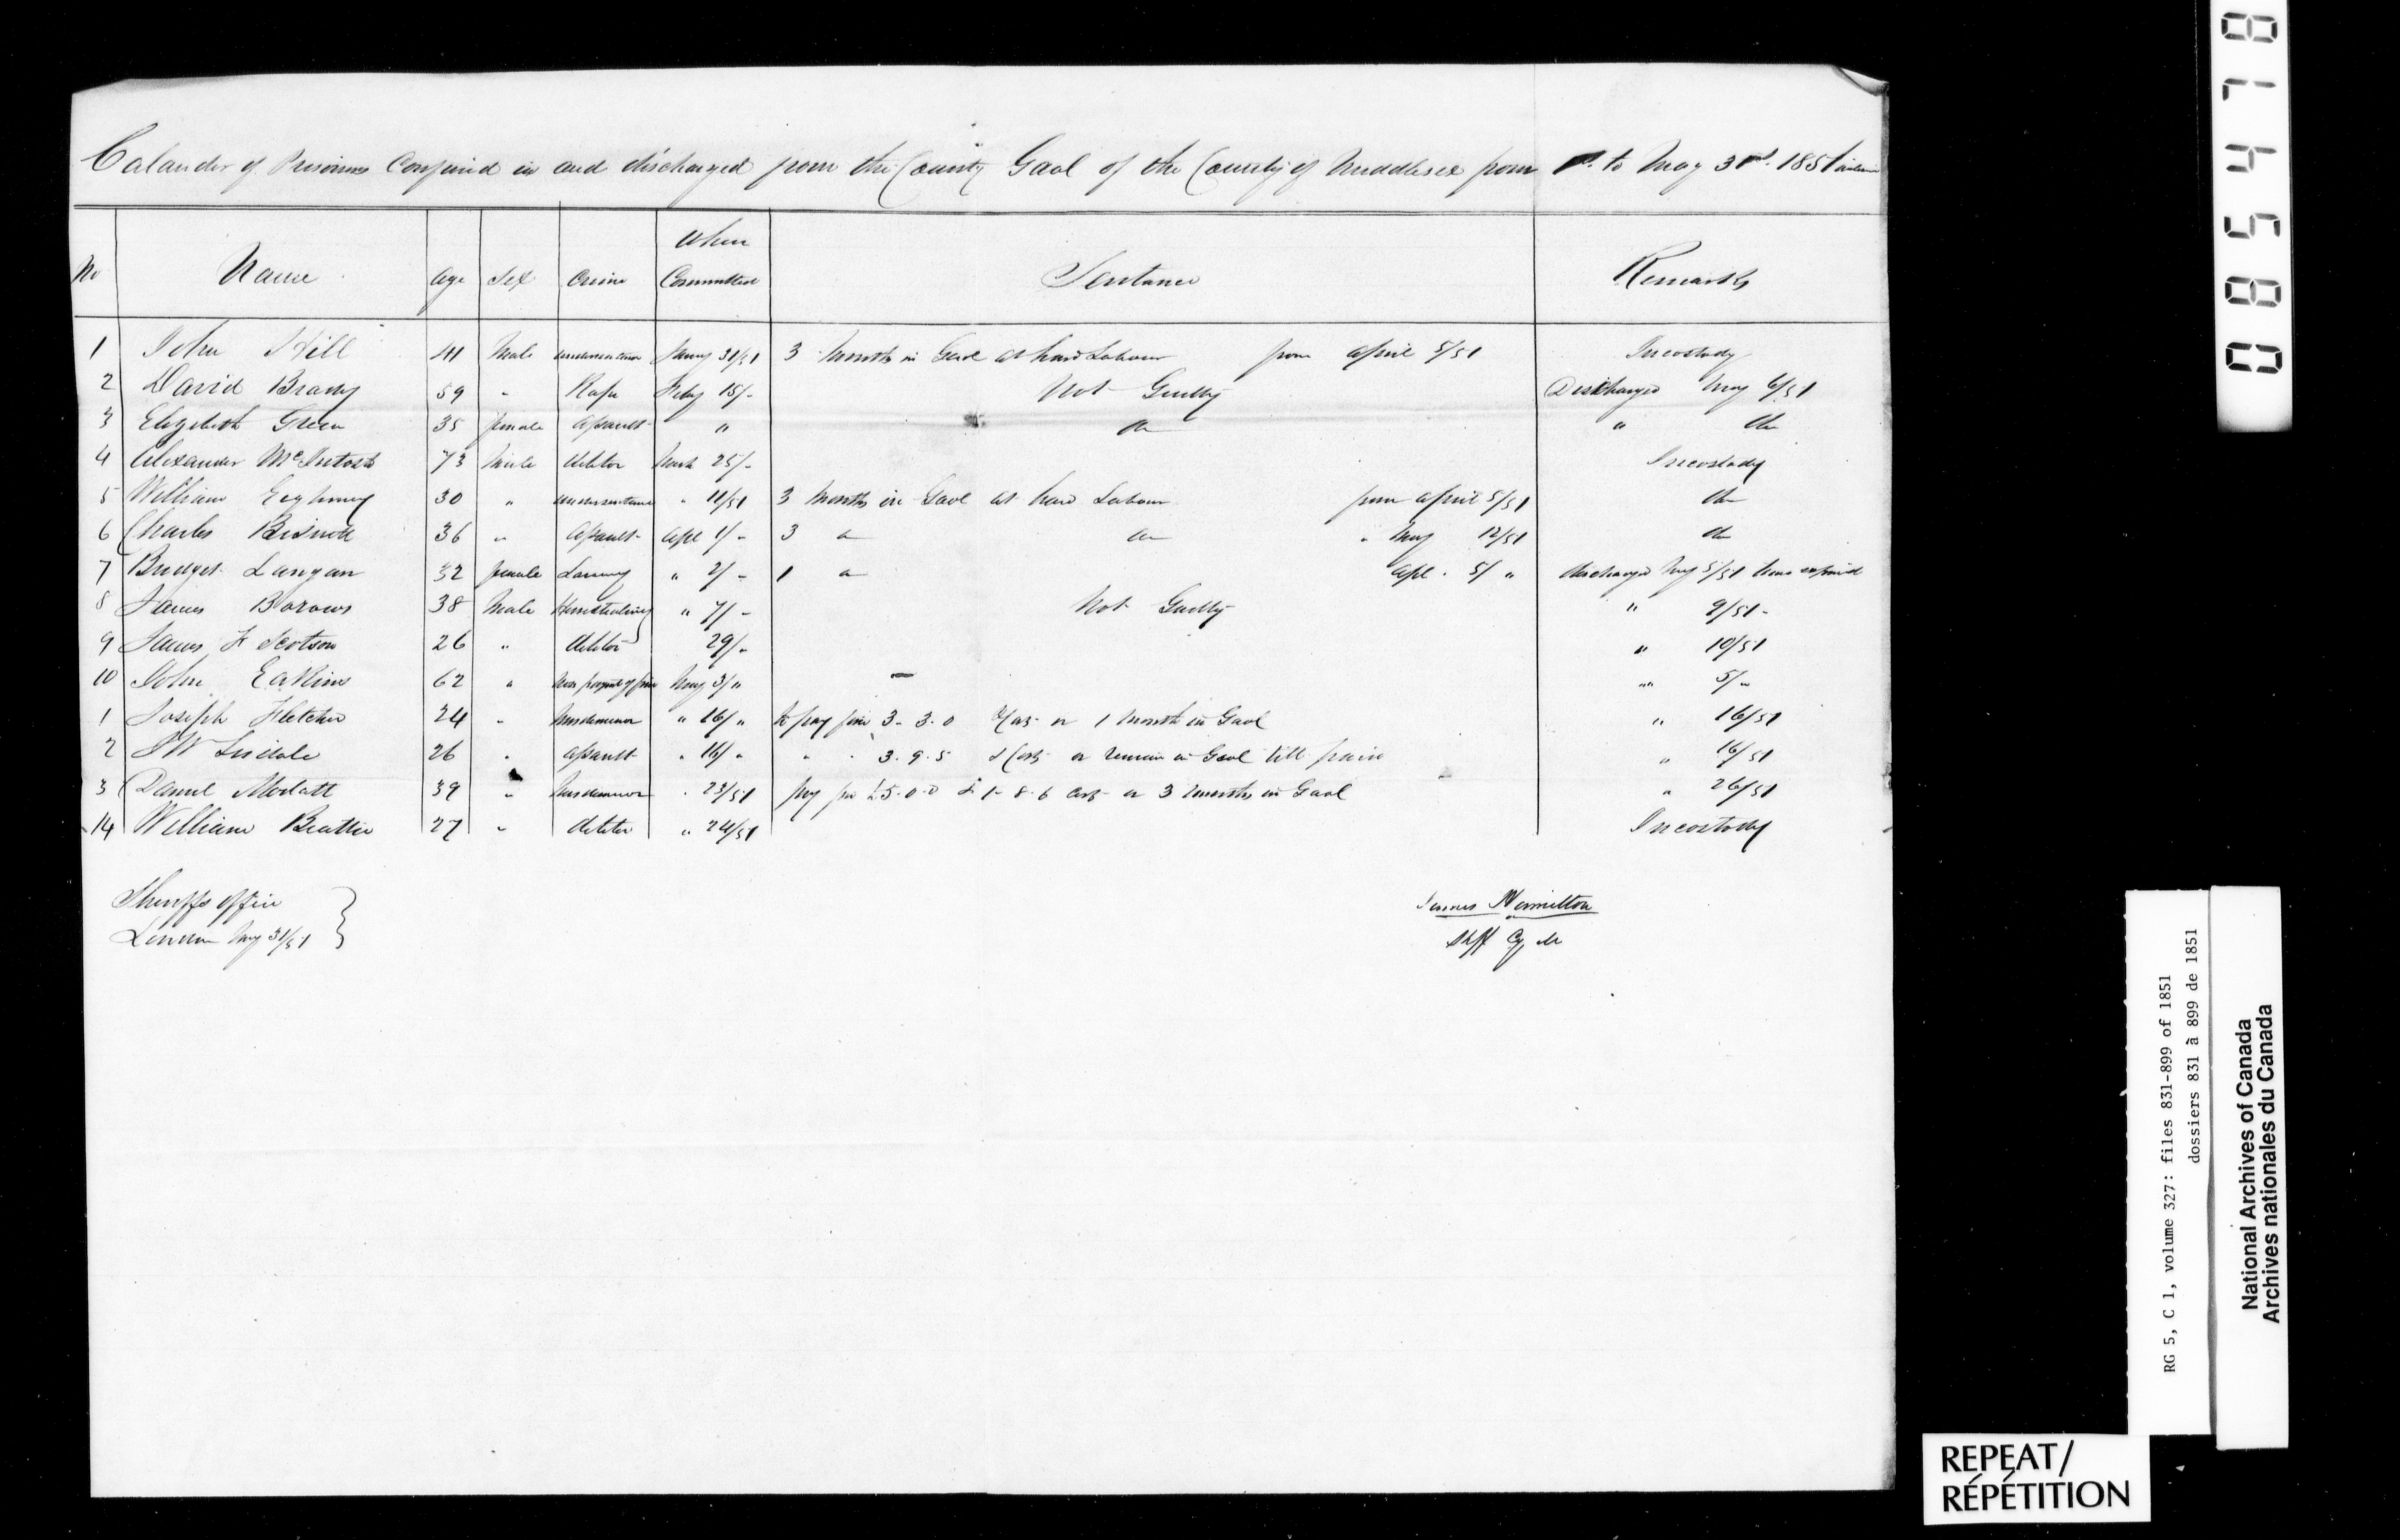 Calander of Prisoners Confined in and discharged from the County Gaol of the County of Middlesex from 1st to May 31st 1851
No Name Age Sex Crime When Committed Sentance Remarks
1 John Hill 41 Male Misdemeanor Jany 31/51 3 Months in Gaol at hard Labour from April 5/51 In costody
2 David Brady 59 " Rape Feby 15/- Not Guilty Discharged May 6/51
3 Elizabeth Green 35 female Assault " do " do
4 Alexander McIntosh 73 Male debtor March 25/- In costody
5 William 30 " 11/51 3 Months in Gaol at hard Labour from April 5/51 do
6 Charles 36 " Assault Apl 1/- 3 do do " May 12/51 do
7 Bridget Langan 32 female Larceny " 2/- 1 do Apl. 5/ " discharged May 5/51 time expired
8 James Borows 38 Male Horse stealing " 7/- Not Guilty " 9/51 -
9 James F Scotson 26 " debtor 29/- " 10/51
10 John Eakins 62 " Non payment of fine May 3/" — " 5/-
1 Joseph Fletcher 24 " Misdemenor " 16/" to pay fine 3-3.0 & Cos or 1 Month in Gaol " 16/51
2 26 " Assault " 16/ " " " 3.9.5 & Cos or remain in Gaol till paid " 16/51
3 Daniel 39 " Misdemenor " 23/51 pay fin £5-0-0 & 1-8-6 Cos or 3 months in Gaol " 26/51
14 William Beattie 27 " debtor " 24/51 In costody
Sheriffs office
London May 31/51
James Hamilton
Shff Cy M
085478
RG 5, C 1, volume 327: files 831-899 of 1851
dossiers 831 à 899 de 1851
National Archives of Canada
Archives nationales du Canada
REPEAT/
RÉPÉTITION